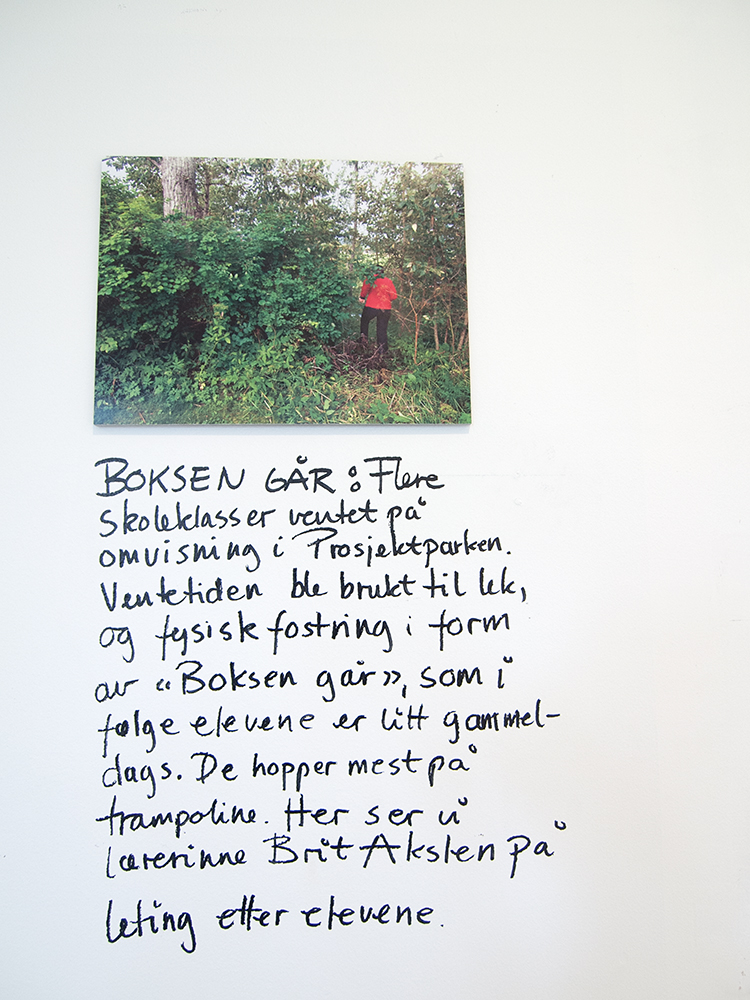 BOKSEN GÅR: Flere
skoleklasser ventet på
omvisning i Prosjektparken.
Ventetiden ble brukt til lek,
og fysisk fostring i form
av «Boksen går», som i
følge elevene er litt gammel-
dags. De hopper mest på
trampoline. Her ser vi
lærerinne Brit Akslen på
leting etter elevene.